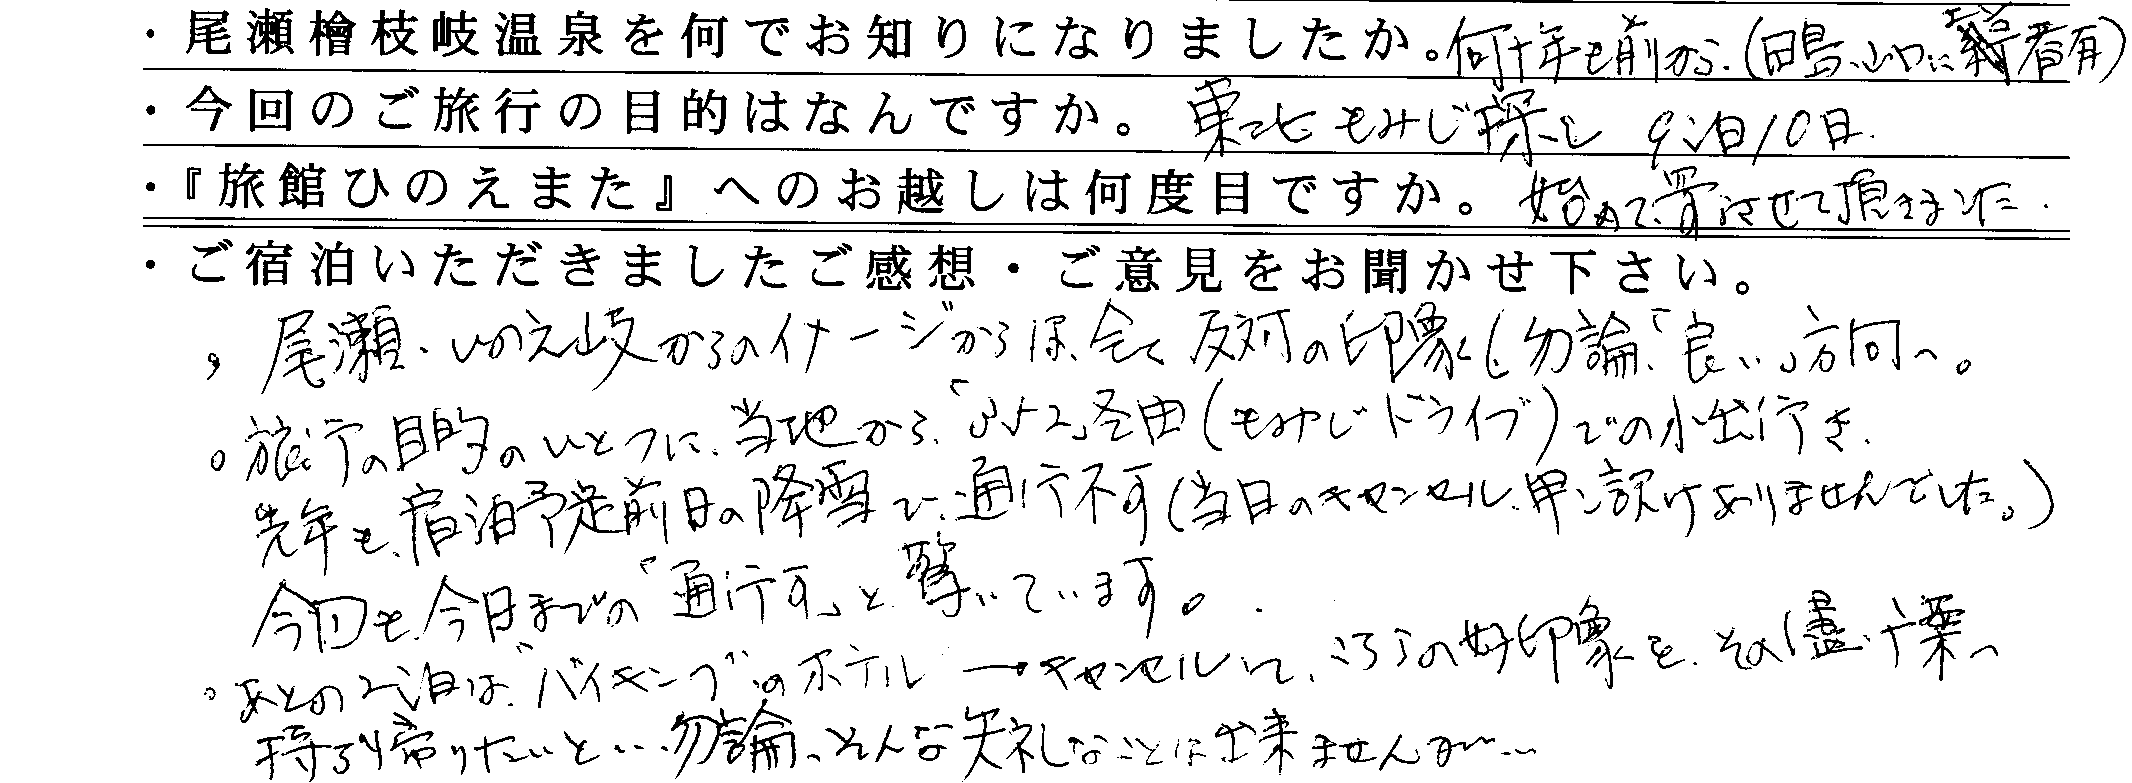 ・尾瀬檜枝岐温泉を何でお知りになりましたか。何十年も前から.(田島、山口に親者有)
・今回のご旅行の目的はなんですか。東北もみじ探し 9泊10日.
・『旅館ひのえまた』へのお越しは何度目ですか。始めて、寄らせて頂きました.
・ご宿泊いただきましたご感想・ご意見をお聞かせ下さい。
尾瀬・ひのえ岐からのイメージからは、全く反対の印象(勿論、「良い」方向へ。
。旅行の目的のひとつに、当地から、経由(もみじドライブ)での小出行き.
先年も、宿泊予定前日の降雪で、通行不可(当日のキャンセル、申し訳けありませんでした。)
今回も、今日までの「通行可」と驚いています。
。あとの2泊は、"バイキング"のホテル →キャンセルして、こちらの好印象を、その儘、千葉へ
持ち帰りたいと…勿論、そんな失礼なことは出来ませんが…